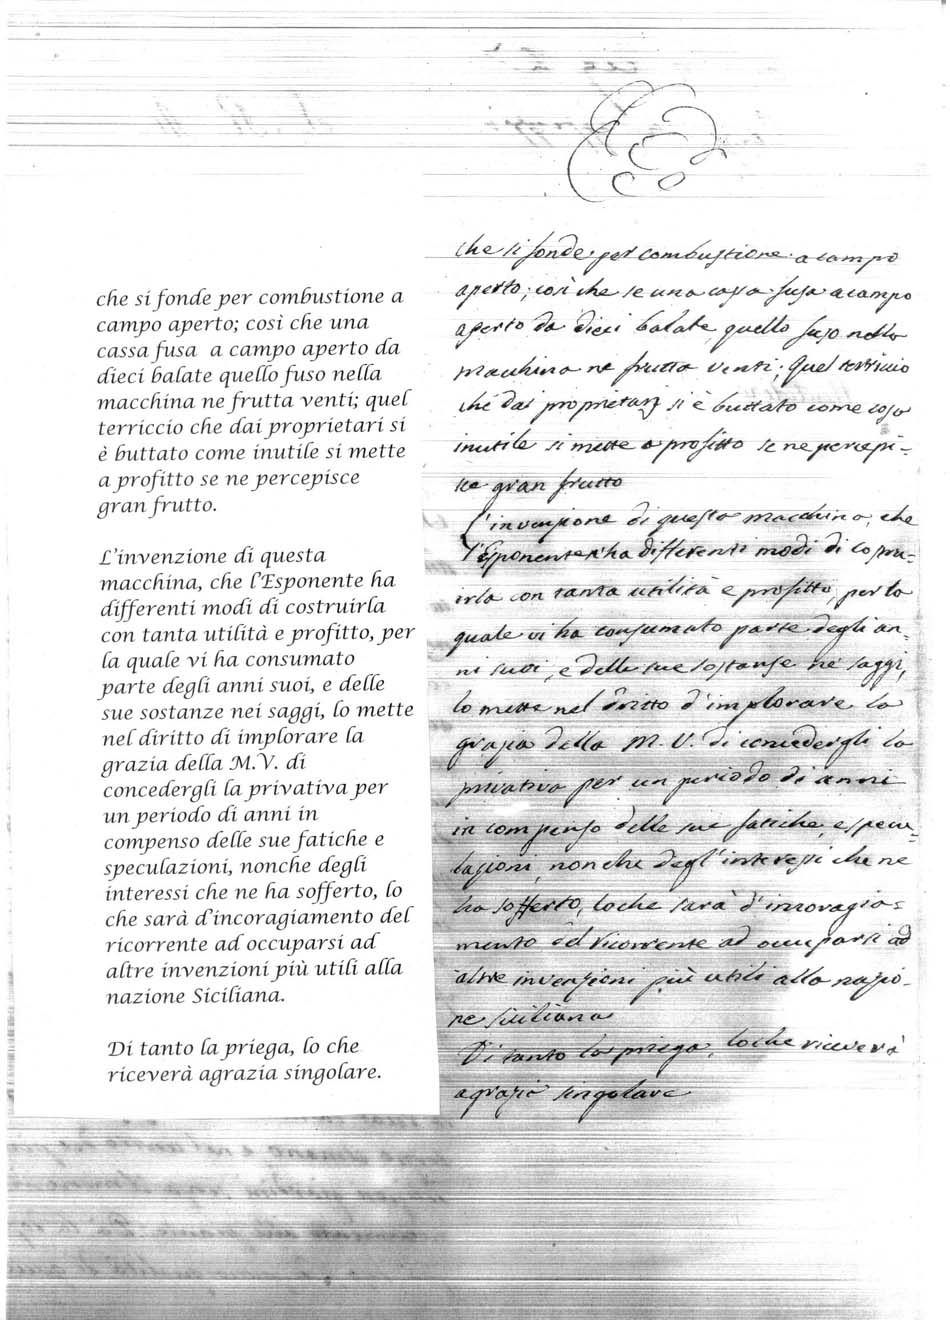 che si fonde per combustione a
campo aperto; così che una
cassa fusa a campo aperto da
dieci balate quello fuso nella
macchina ne frutta venti; quel
terriccio che dai proprietari si
è buttato come inutile si mette
a profitto se ne percepisce
gran frutto.
L'invenzione di questa
macchina, che l'Esponente ha
differenti modi di costruirla
con tanta utilità e profitto, per
la quale vi ha consumato
parte degli anni suoi, e delle
sue sostanze nei saggi, lo mette
nel diritto di implorare la
grazia della M.V. di
concedergli la privativa per
un periodo di anni in
compenso delle sue fatiche e
speculazioni, nonche degli
interessi che ne ha sofferto, lo
che sarà d'incoragiamento del
ricorrente ad occuparsi ad
altre invenzioni più utili alla
nazione Siciliana.
Di tanto la priega, lo che
riceverà agrazia singolare.
che si fonde per combustione a campo
aperto; così che se una cassa fusa a campo
aperto da dieci balate, quello fuso nella
macchina ne frutta venti; Quel terriccio
che dai proprietarj si è buttato come cosa
inutile si mette a profitto se ne percepi=
sce gran frutto
L'invenzione di questa macchina, che
l'Esponente ha differenti modi di costru=
irla con tanta utilità e profitto, per la
quale vi ha consumato parte degli an=
ni suoi, e delle sue sostanze ne' saggi,
lo mette nel dritto d'implorare la
grazia della M. V. di concedergli la
privativa per un periodo di anni
in compenso delle sue fatiche, e specu=
lazioni, nonche degl'interessi che ne
ha sofferto, loche sarà d'incoragia=
mento del ricorrente ad occuparsi ad
altre invenzioni più utili alla nazio=
ne siciliana
Di tanto la priega, loche riceverà
a grazia singolare